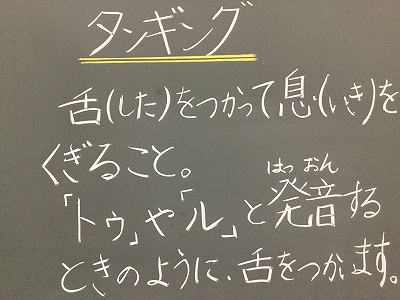 タンギング
舌(した)をつかって息(いき)を
くぎること。
はつ おん
「トゥ」や「ル」と発音する
ときのように、舌をつかいます。